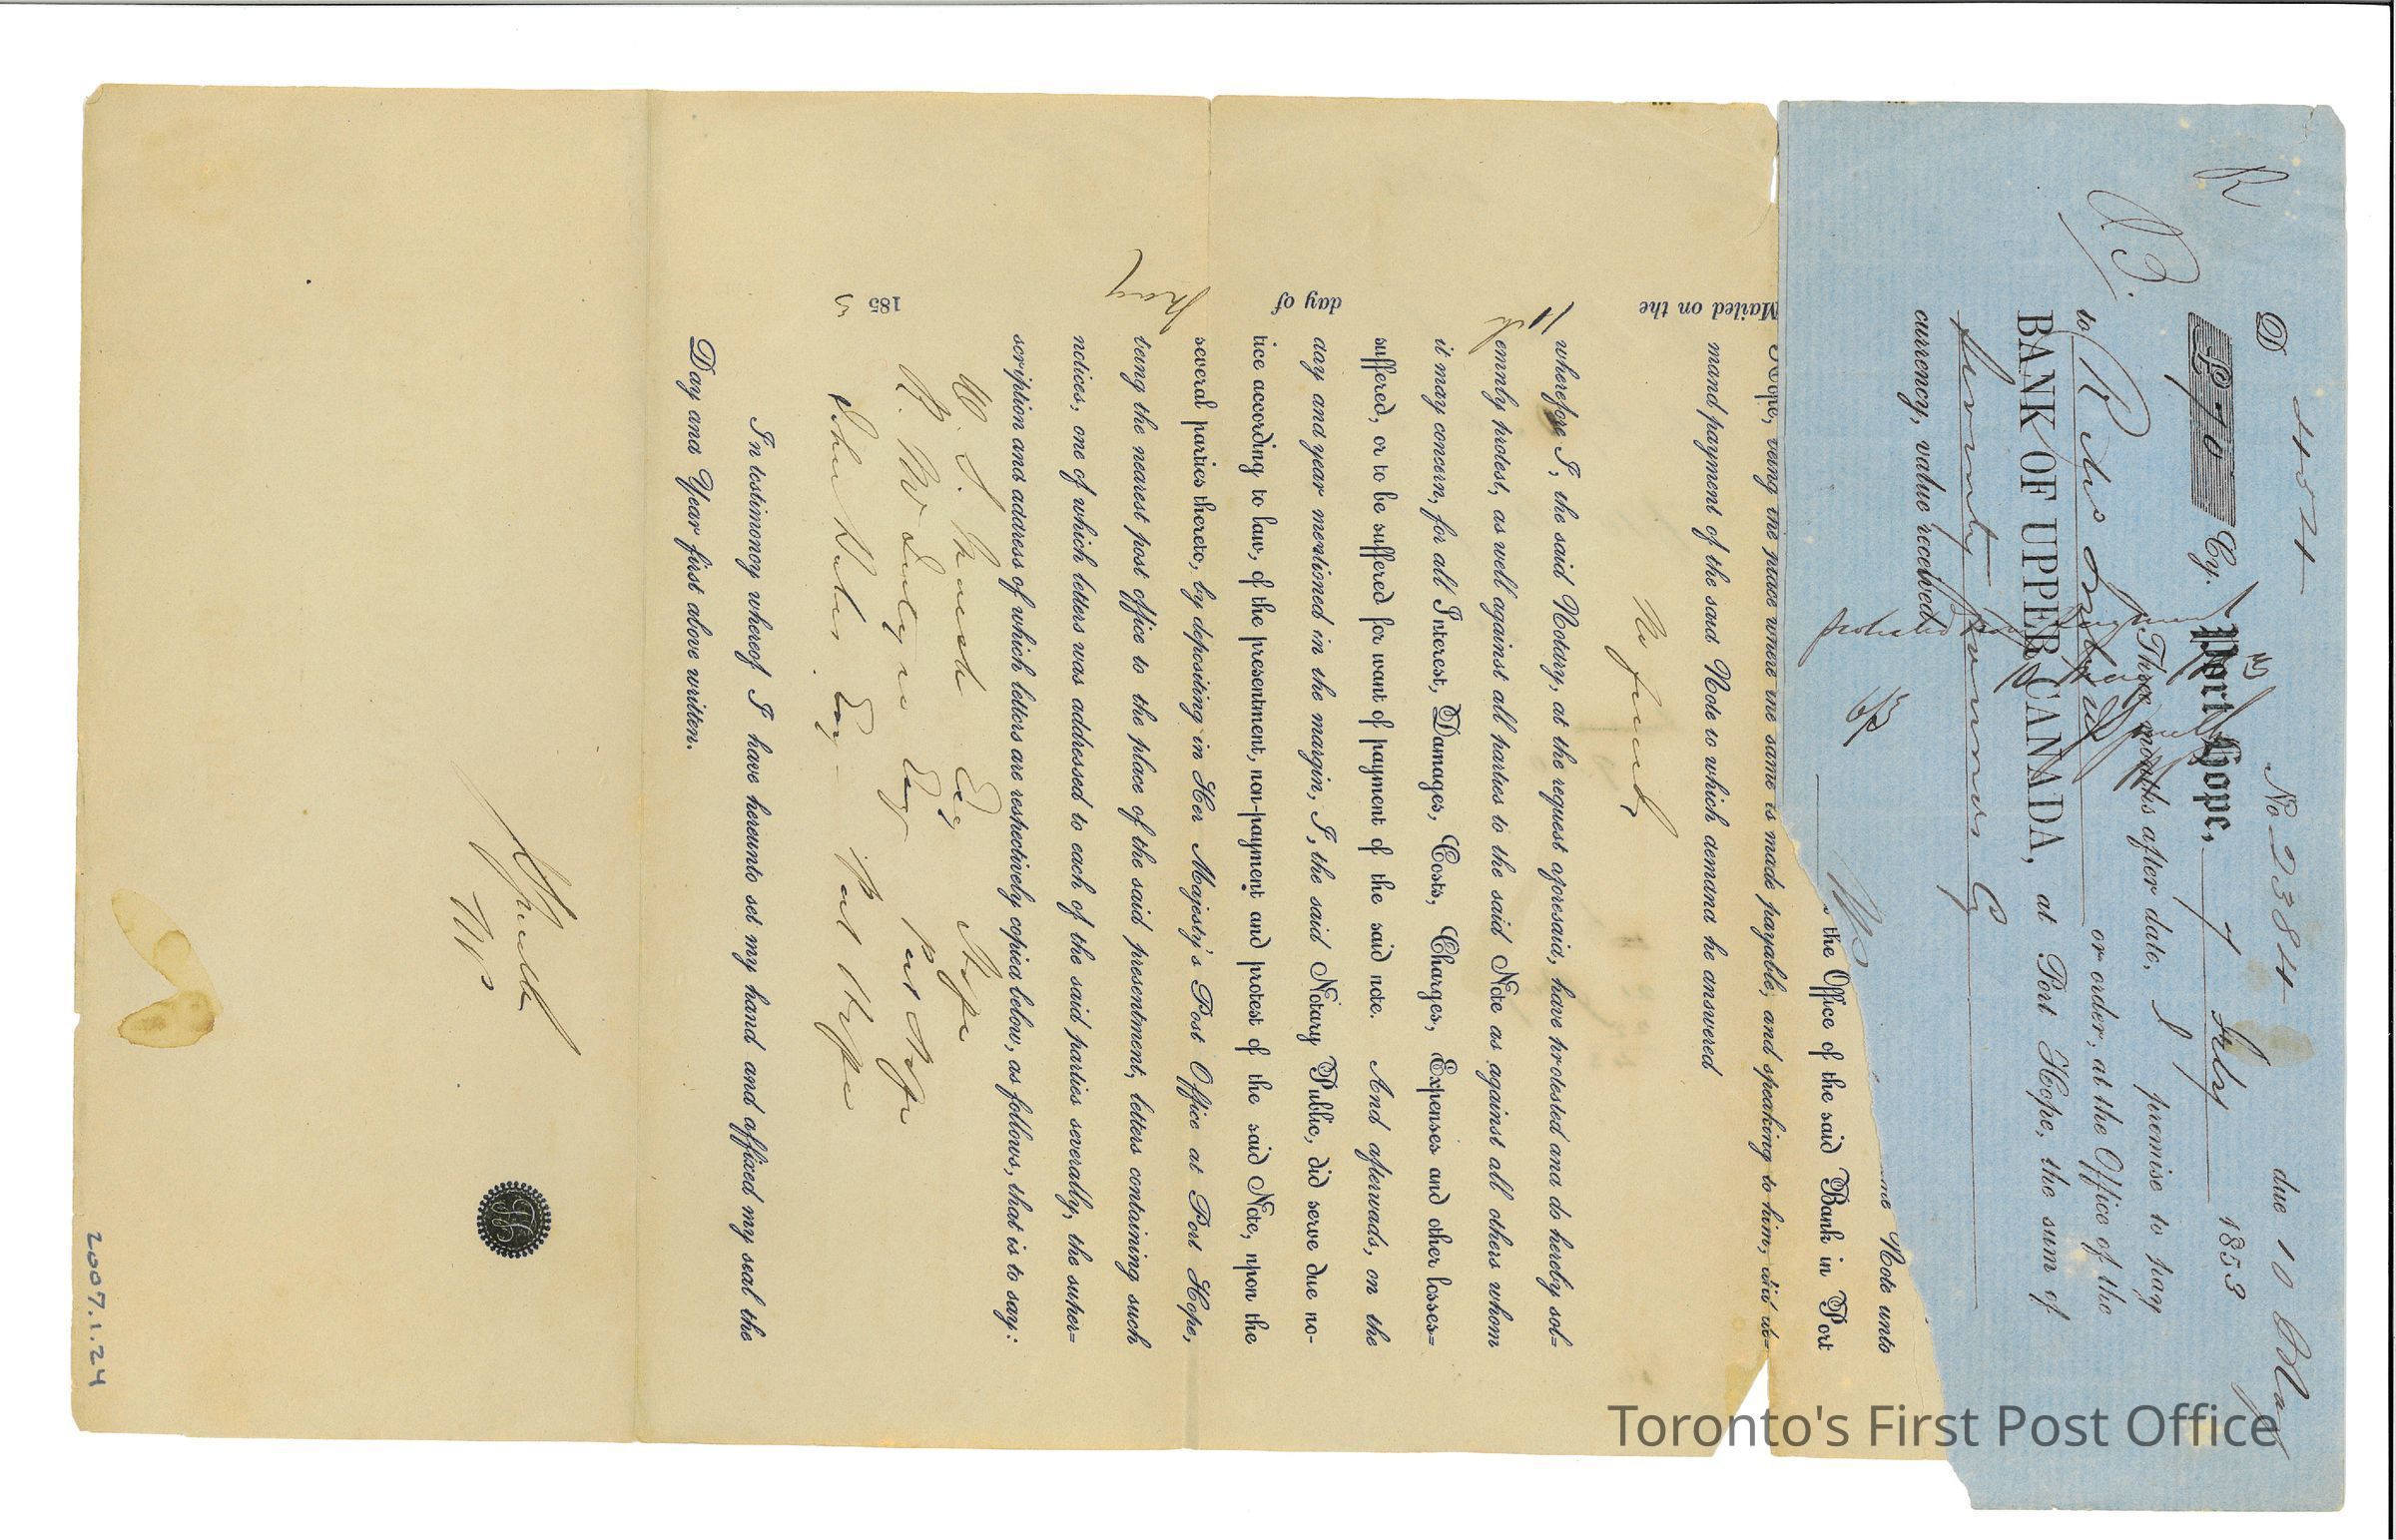 No 2384 due 10 May
D £70 Cy. Port Hope, 7 Feby 1853
Three months after date, I promise to pay
to or order, at the Office of the
BANK OF UPPER CANADA, at Port Hope, the sum of
Seventy pounds Cy
currency, value received.
Note unto
the Office of the said Bank in Port
Hope, being the place where the same is made payable, and speaking to him, did de-
mand payment of the said Note to which demand he answered
No funds
wherefore I, the said Notary, at the request aforesaid, have protested and do hereby sol-
emnly protest, as well against all parties to the said Note as against all others whom
it may concern, for all Interest, Damages, Costs, Charges, Expenses and other losses-
suffered, or to be suffered for want of payment of the said note. And afterwads, on the
day and year mentioned in the margin, I, the said Notary Public, did serve due no-
tice according to law, of the presentment, non-payment and protest of the said Note, upon the
several parties thereto, by depositing in Her Majesty's Post Office at Port Hope,
being the nearest post office to the place of the said presentment, letters containing such
notices, one of which letters was addressed to each of the said parties severally, the super-
scription and address of which letters are respectively copied below, as follows, that is to say:
Esq
Esq Port Hope
John Esq Port Hope
In testimony whereof I have hereunto set my hand and affixed my seal the
Day and Year first above written.
NP
Mailed on the
11th
day of
May
1853
2007.1.24
Toronto's First Post Office